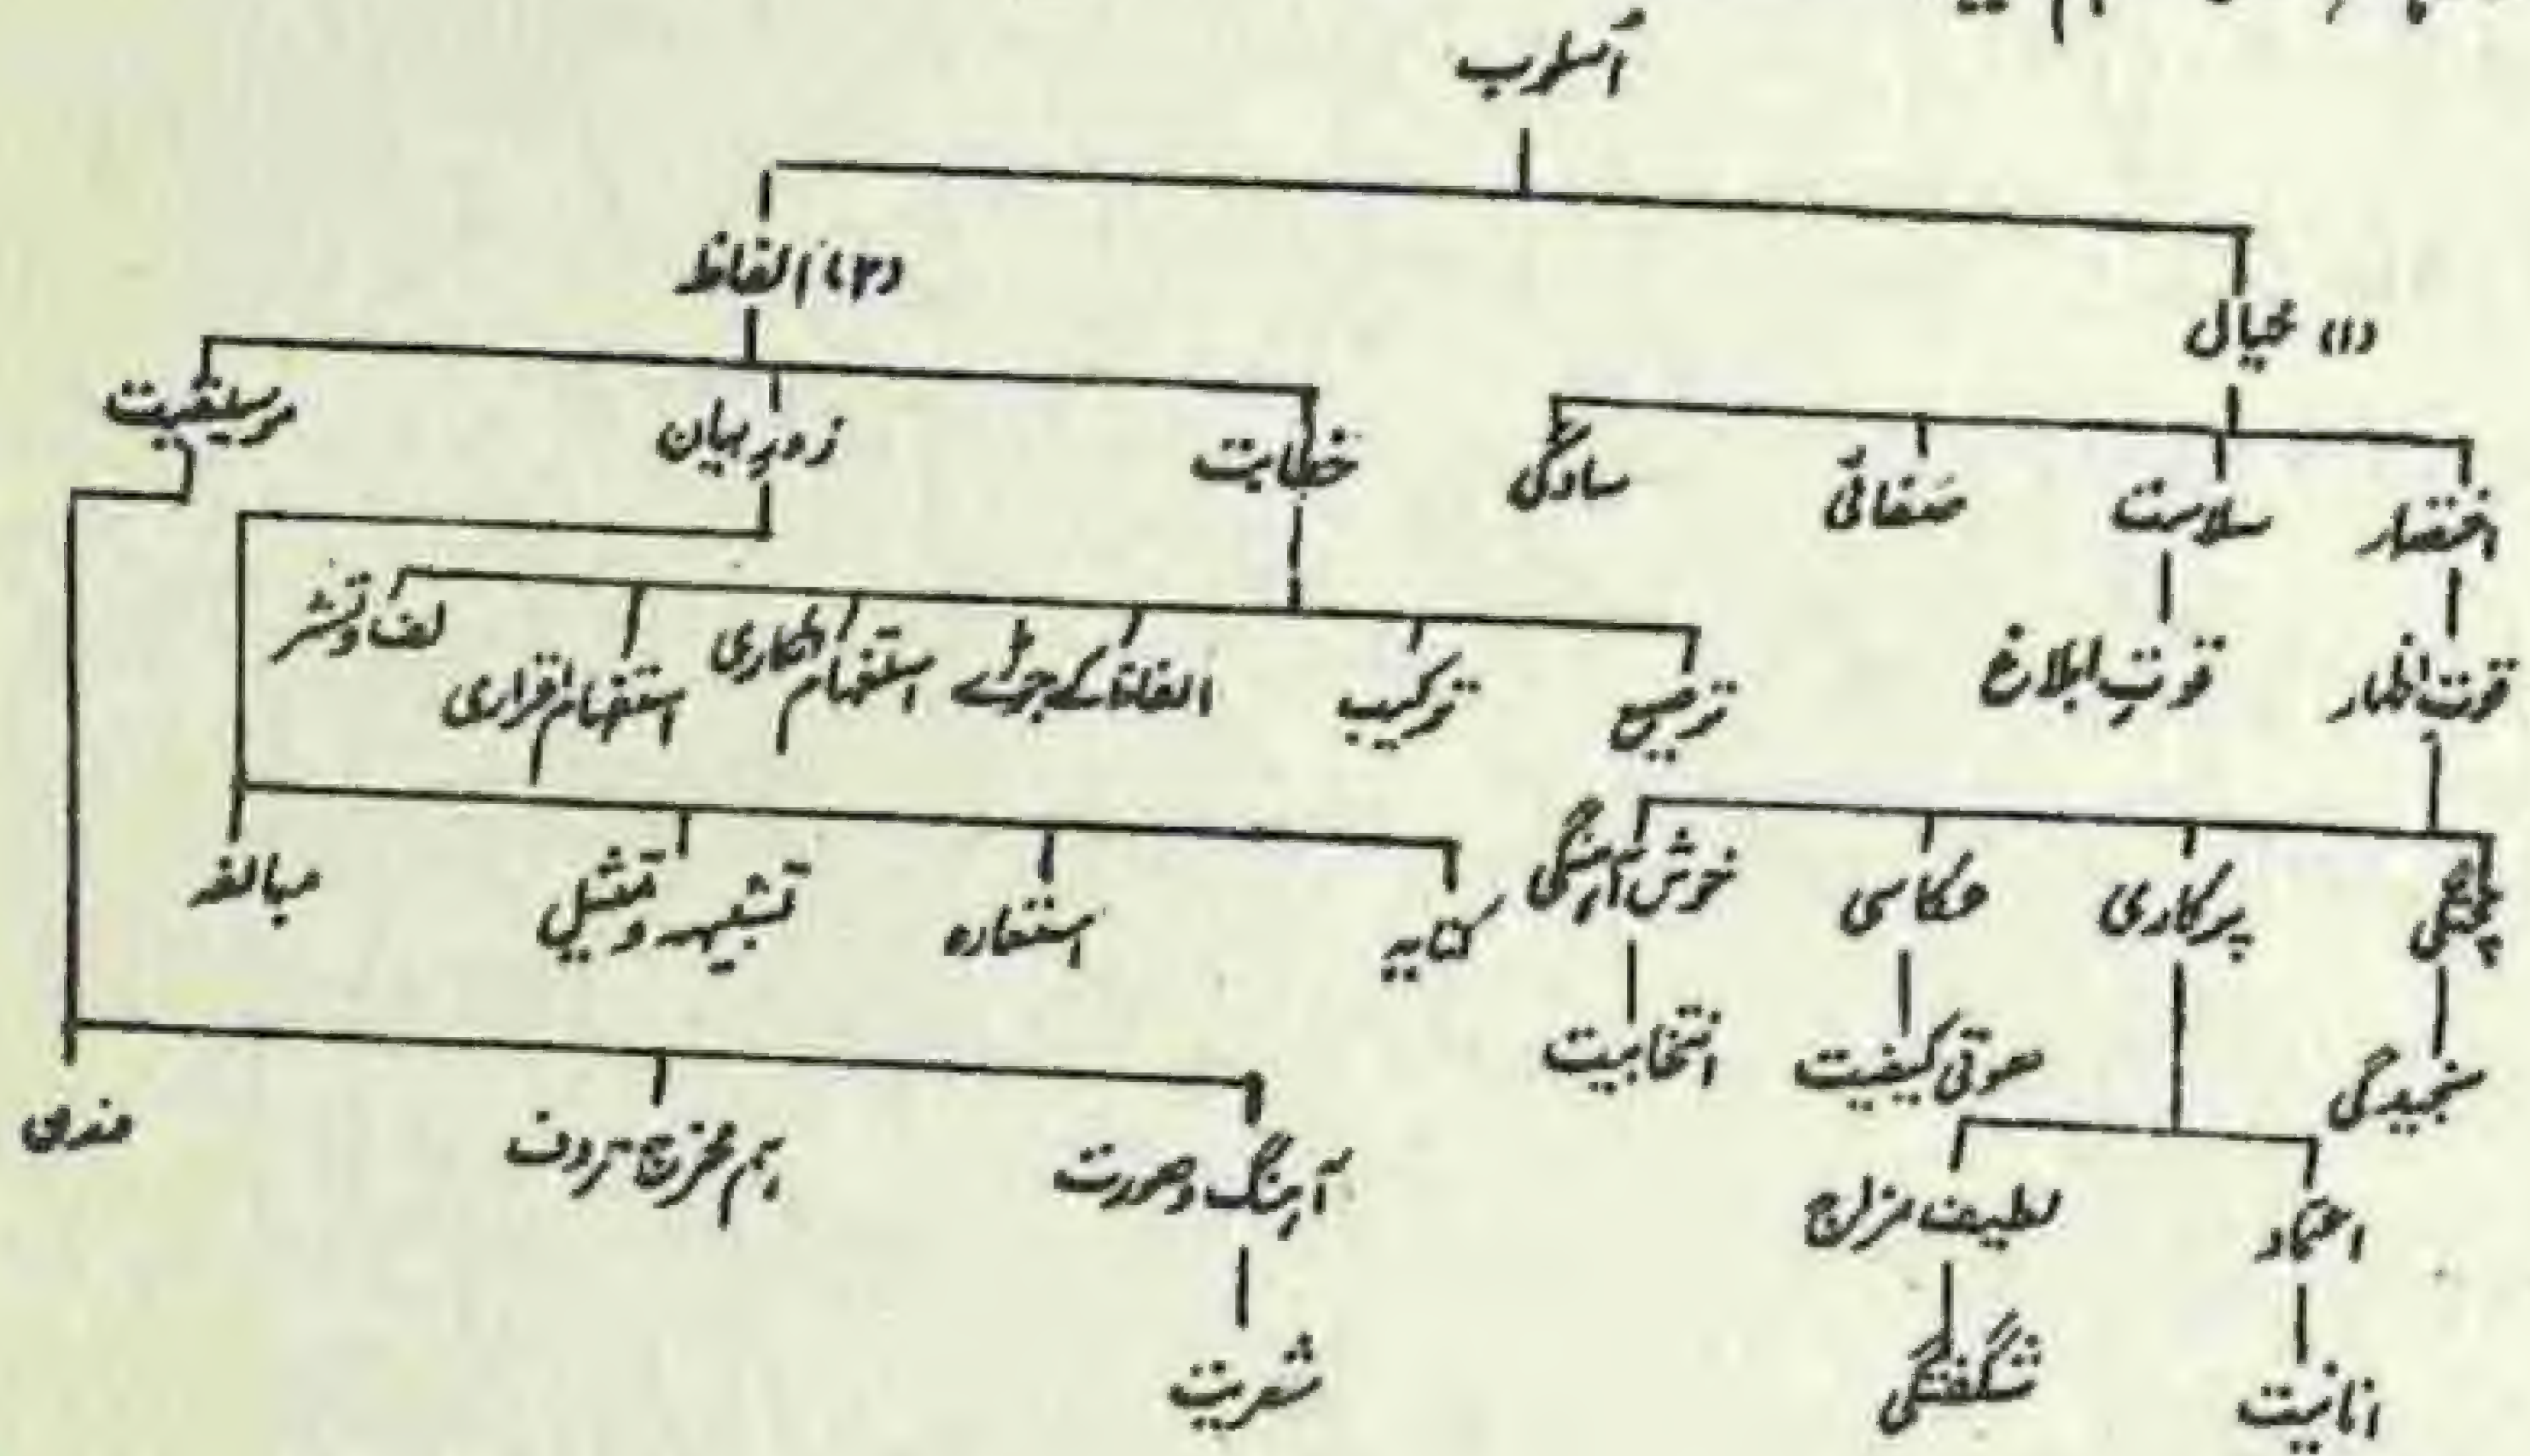 اُسلوب
(۱) خیالی (۲) الفاظ
اختصار سلاست صفائی سادگی
خطابت زورِ بیان موسیقیت
قوت اظہار قوتِ ابلاغ
ترصیع ترکیب الفاظ کے جوڑے استفہام انکاری استفہام اقراری لف و نشر
پختگی پرکاری عکاسی خوش آہنگی
کنایہ استعارہ تشبیہہ و تمثیل مبالغہ
سنجیدگی صوتی کیفیت انتخابیت
اعتماد لطیف مزاج
آہنگ و صورت ہم مخرج حروف
انانیت شگفتگی
شعریت